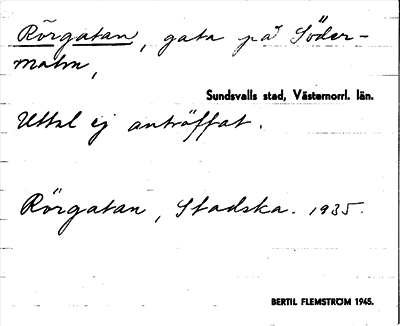 Rörgatan, gata på Söder-
malm,
Sundsvalls stad, Västernorrl. län.
Uttal ej anträffat.
Rörgatan, Stadska. 1935.
BERTIL FLEMSTRÖM 1945.